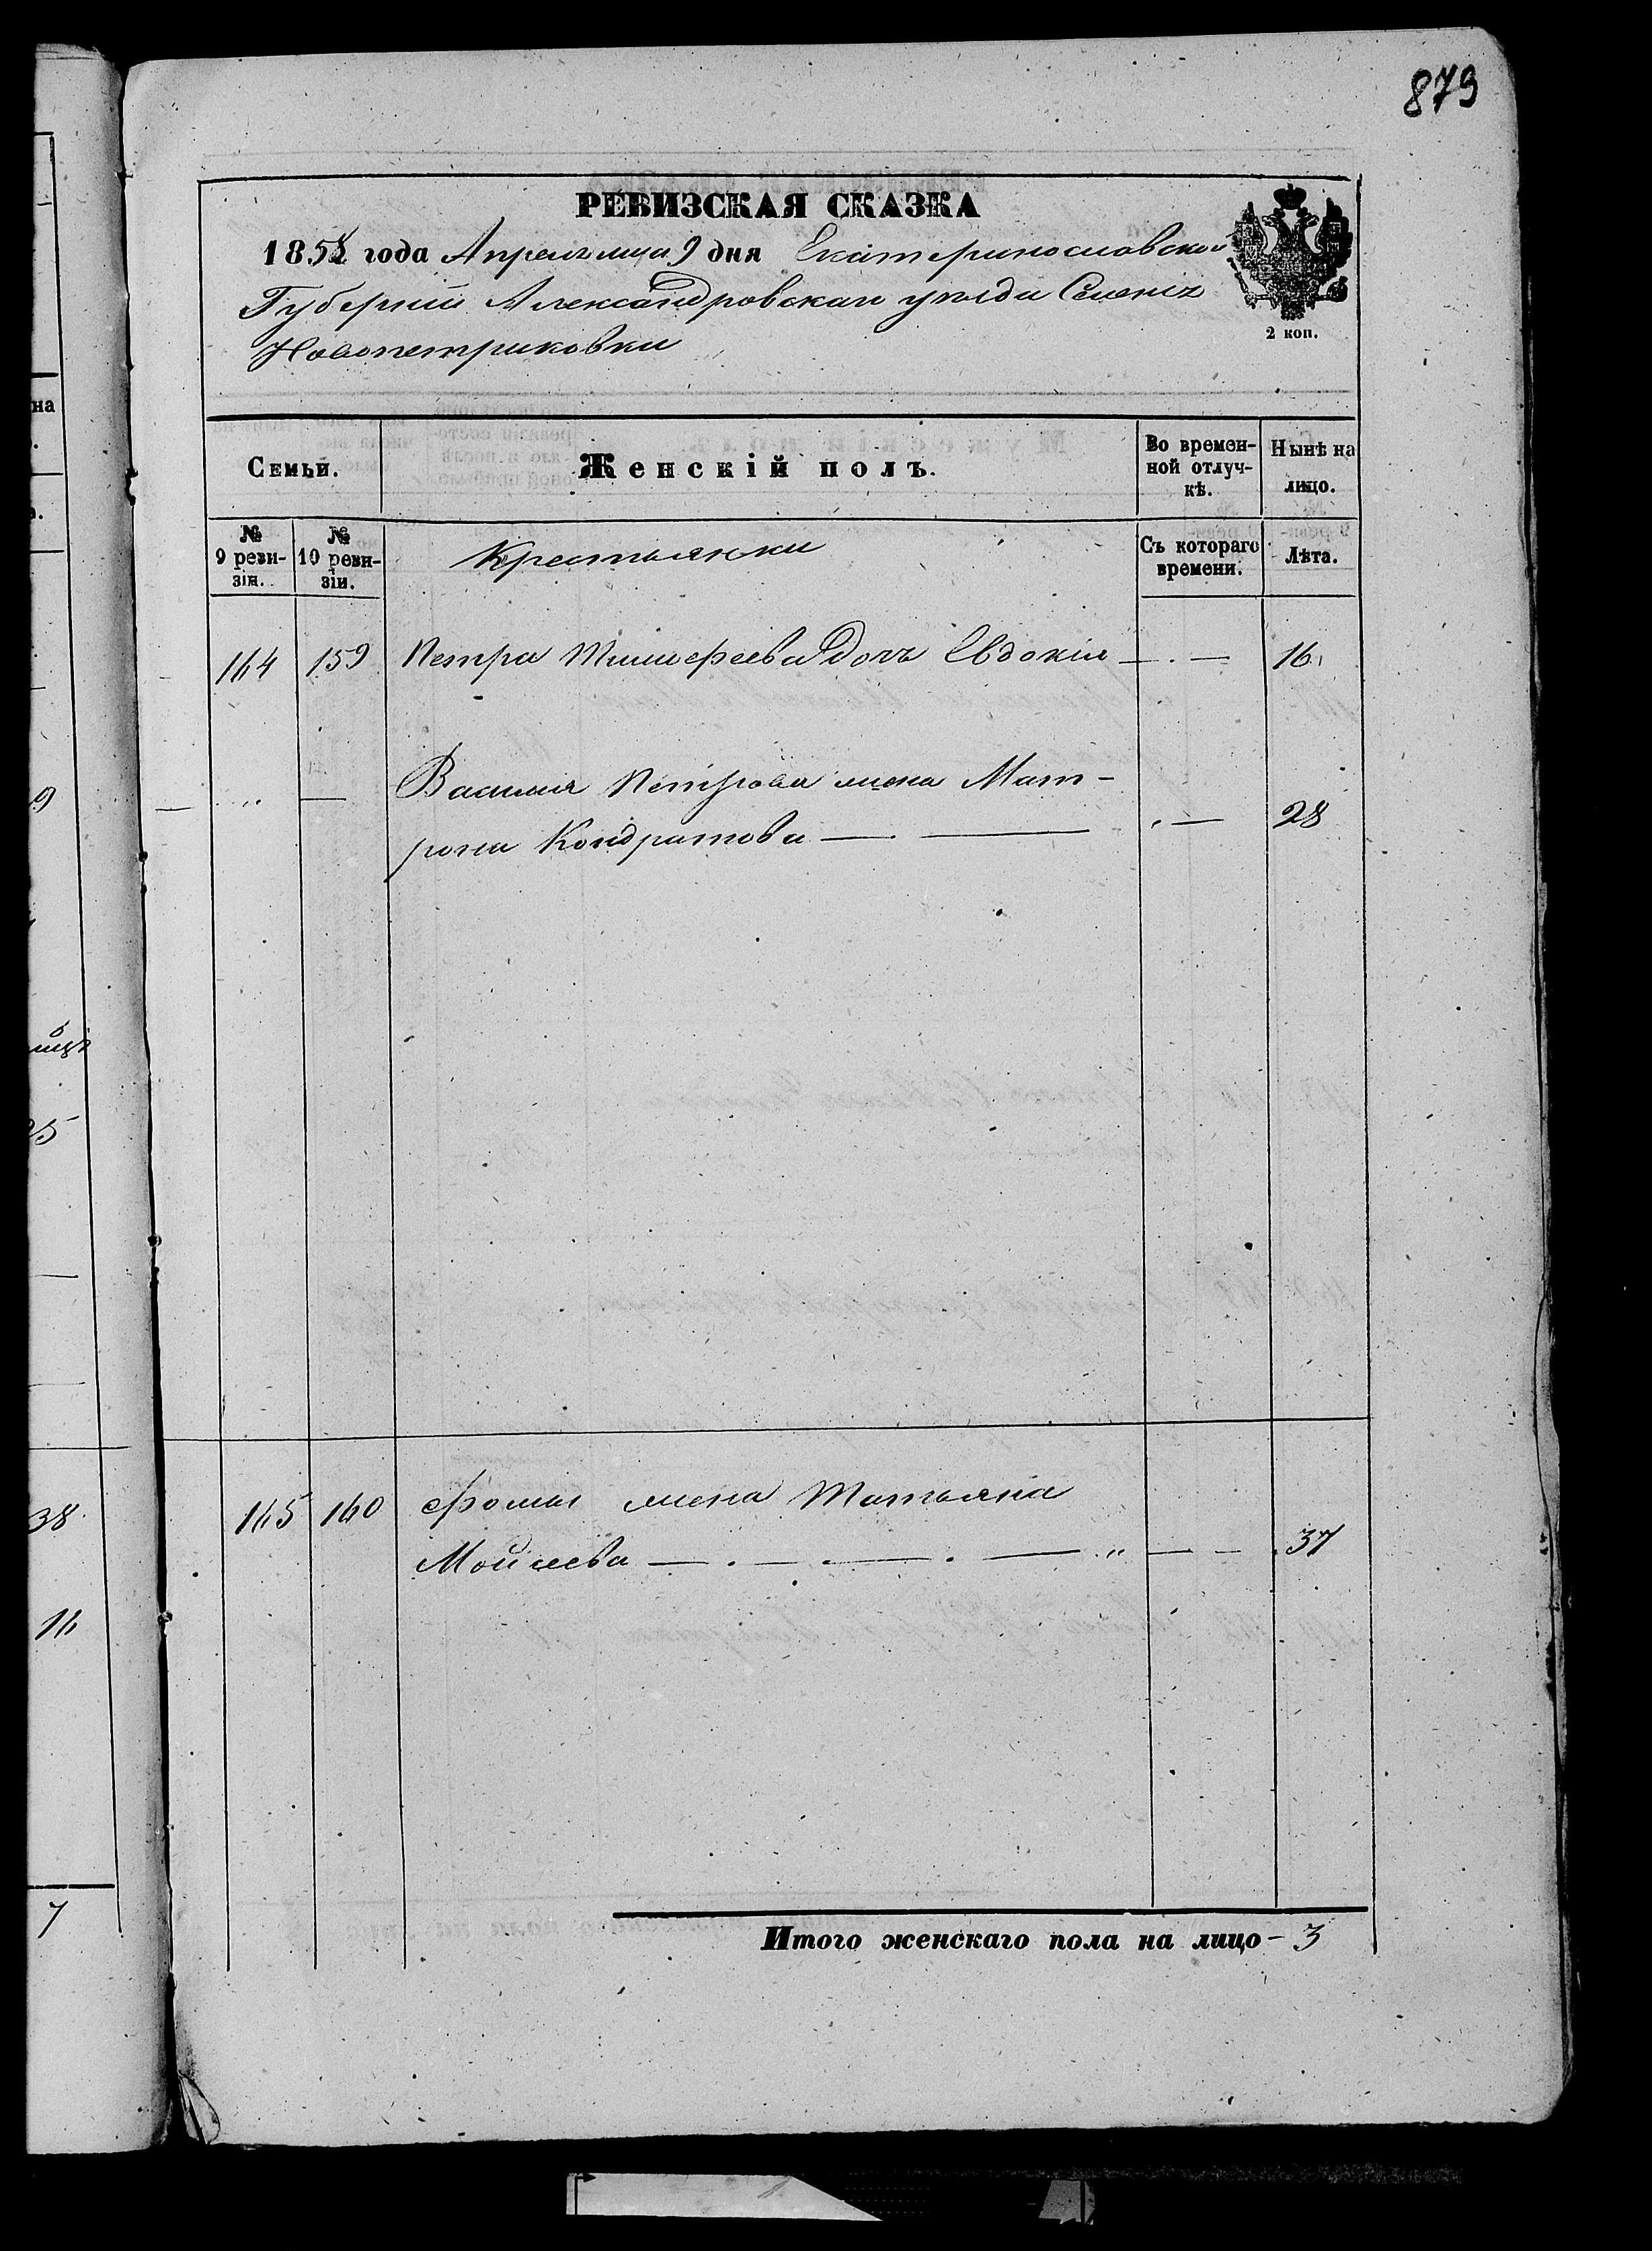 879
РЕВИЗСКАЯ СКАЗКА
1858 года Апрель мца 9 дня Екатеринославской
Губернiи Александровскаго уезда Селенiя
Новопетриковки
2 коп.
Семьи.
Женскiй полъ.
Во времен-
ной отлуч-
кѣ.
Нынѣ на
лицо.
№
9 реви-
зiи.
№
10 реви-
зiи.
Крестьянки
Съ котораго
времени.
Лѣта.
164 159 Петра Тимофеева дочь Евдокiя — . — 16
— „ — Василия Петрова жена Мат-
рона Кондратова — . — . — 28
165 160 Фомы жена Татьяна
Мойсеева — . — . — . — „ — — 37
Итого женскаго пола на лицо - 3
на
9
25
38
16
7